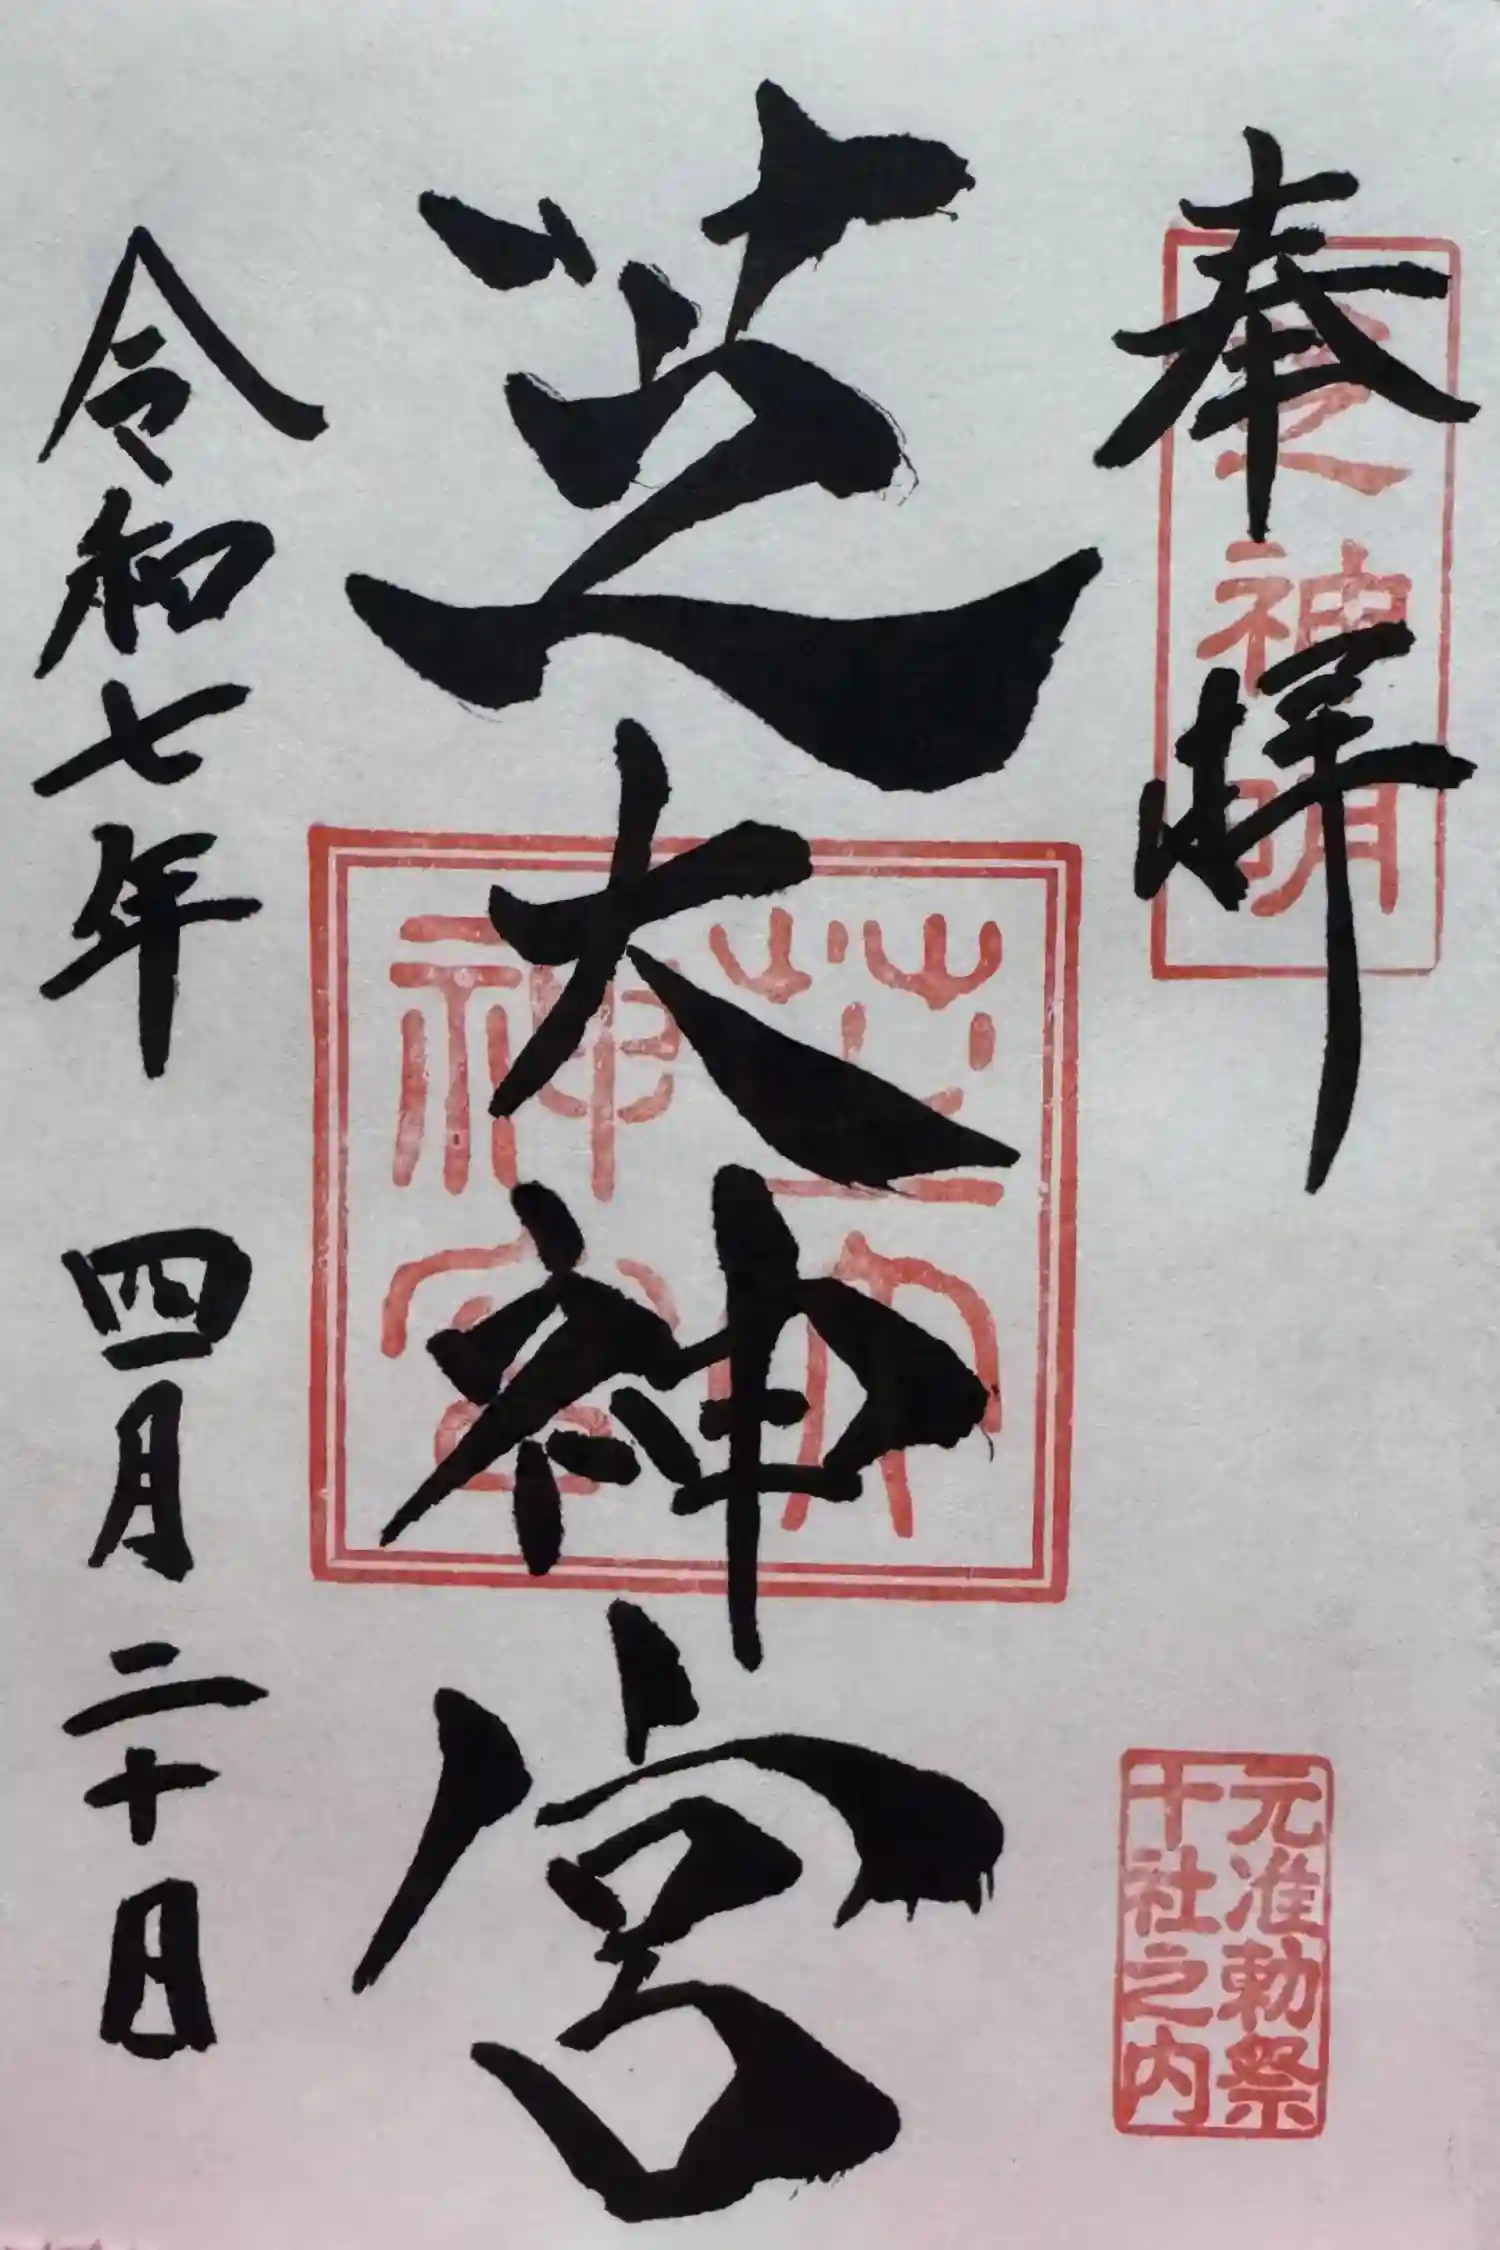 奉拝
芝神明
元准勅祭
十社之内
芝大神宮
芝大
神宮
令和七年 四月二十日